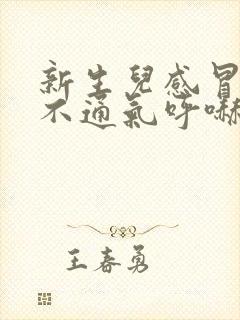 新生兒感冒
不通氣呼嚇
王春勇